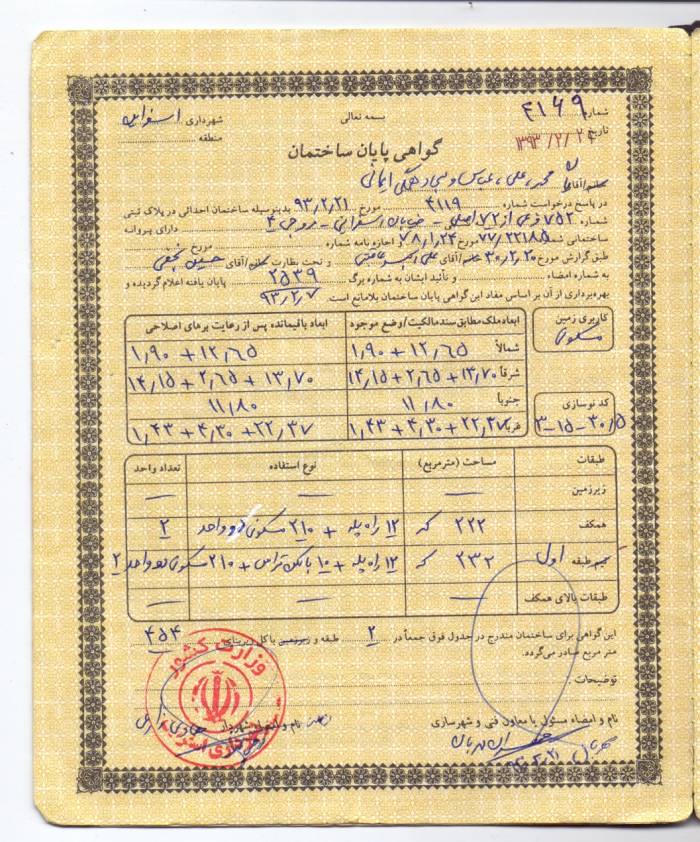 بسمه تعالی
شهرداری اسفراین
منطقه
شماره ۴۱۶۹
تاریخ ۱۳۹۳/۲/۲۱
گواهی پایان ساختمان
خانم/آقای محمد، علی، عباس و
در پاسخ درخواست شماره ۴۱۱۹ مورخ ۹۳٫۲٫۲۱ بدینوسیله ساختمان احداثی در پلاک ثبتی
شماره ۷۵۲ فرعی از ۷۲ اصلی - خیابان - ۴ دارای پروانه
ساختمانی شماره ۷۷/۲۲۱۸۵ مورخ ۷۸٫۱٫۲۴ اجازه نامه شماره مورخ
طبق گزارش مورخ ۳۰٫۲٫۲۰ خانم/آقای علی و تحت نظارت خانم/آقای حسین نجفی
به شماره امضاء و تأئید ایشان به شماره برگ ۲۵۳۹ پایان یافته اعلام گردیده و
بهره‌برداری از آن بر اساس مفاد این گواهی پایان ساختمان بلامانع است. ۹۳٫۲٫۷
کاربری زمین
مسکونی
ابعاد ملک مطابق سند مالکیت/وضع موجود
ابعاد باقیمانده پس از رعایت برهای اصلاحی
شمالاً ۱٫۹۰ + ۱۲٫۶۵ ۱٫۹۰ + ۱۲٫۶۵
شرقاً ۱۴٫۱۵ + ۲٫۶۵ + ۱۳٫۷۰ ۱۴٫۱۵ + ۲٫۶۵ + ۱۳٫۷۰
جنوباً ۱۱٫۸۰ ۱۱٫۸۰
غرباً ۱٫۴۳ + ۴٫۳۰ + ۲۲٫۳۷ ۱٫۴۳ + ۴٫۳۰ + ۲۲٫۳۷
کد نوسازی
۳-۱۵-۳۰٫۵
طبقات مساحت (مترمربع) نوع استفاده تعداد واحد
زیرزمین — — —
همکف ۲۲۲ که ۱۲ راه پله + ۲۱۰ مسکونی دو واحد ۲
نیم طبقه اول ۲۳۲ که ۱۲ راه پله + ۱۰ بالکن تراس + ۲۱۰ مسکونی دو واحد ۲
طبقات بالای همکف — — —
این گواهی برای ساختمان مندرج در جدول فوق جمعاً در ۲ طبقه و زیرزمین با کل زیربنای ۴۵۴
متر مربع صادر می‌گردد.
توضیحات:
نام و امضاء مسئول یا معاون فنی و شهرسازی
نام و امضاء شهردار
وزارت کشور